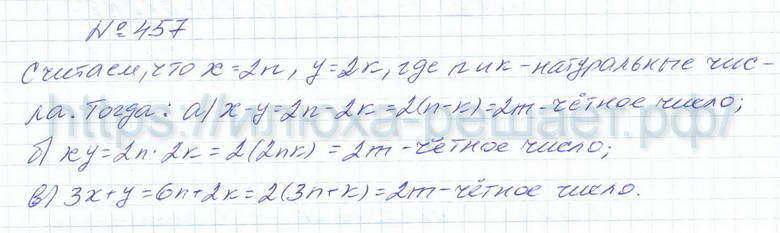 №457
Считаем, что x=2n, y=2k, где n и k – натуральные чис-
ла. Тогда: а) x-y=2n-2k=2(n-k)=2m-чётное число;
https://илюха-решает.рф/
б) xy=2n·2k=2(2nk)=2m-чётное число;
в) 3x+y=6n+2k=2(3n+k)=2m-чётное число.